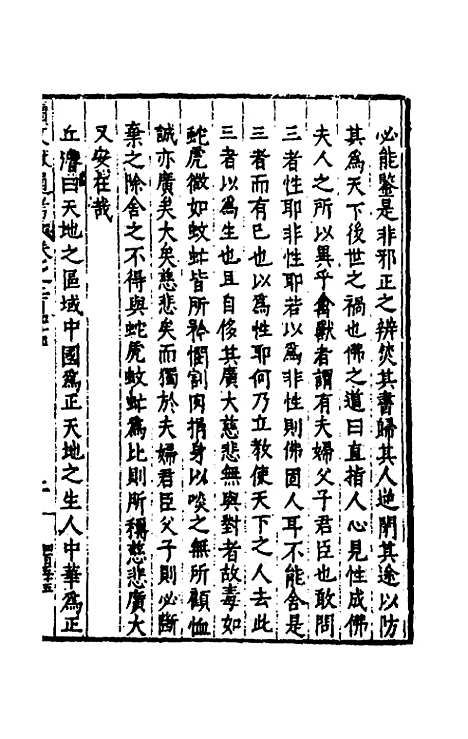 必能鑒是非邪正之辨焚其書歸其人逆閉其途以防
其為天下後世之禍也佛之道曰直指人心見性成佛
夫人之所以異乎禽獸者謂有夫婦父子君臣也敢問
三者性耶非性耶若以為非性則佛固人耳不能舍是
三者而有已也以為性耶何乃立教使天下之人去此
三者以為生也且自侈其廣大慈悲無與對者故毒如
蛇虎微如蚊虻皆所矜憫割肉捐身以啖之無所顧恤
誠亦廣矣大矣慈悲矣而獨於夫婦君臣父子則必斷
棄之除舍之不得與蛇虎蚊虻為比則所稱慈悲廣大
又安在哉
丘濬曰天地之區域中國為正天地之生人中華為正